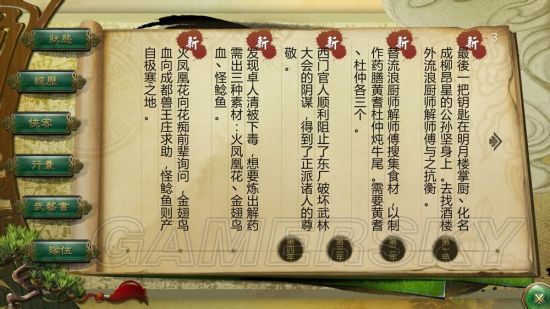 狀態
經歷
俠客
行囊
武藝書
隊伍
3
新
最後一把钥匙在明月楼掌厨、化名
成柳昂星的公孙坚身上。去找酒楼
外流浪厨师解师傅与之抗衡。
新
替流浪厨师解师傅搜集食材，以制
作药膳黄耆杜仲炖牛尾。需要黄耆
、杜仲各三个。
新
西门官人顺利阻止了东厂破坏武林
大会的阴谋，得到了正派诸人的尊
敬。
新
发现卓人清被下毒，想要炼出解药
需出三种素材：火凤凰花、金翅鸟
血、怪鲶鱼。
新
火凤凰花向花痴前辈询问，金翅鸟
血向成都兽王庄求助，怪鲶鱼则产
自极寒之地。
第一年
第二年
第三年
第四年
GAMERSKY